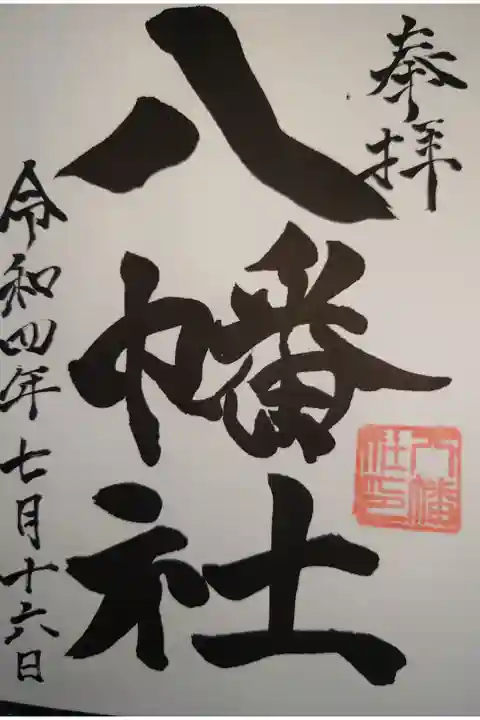 奉拝
八幡社
八幡
社印
令和四年七月十六日